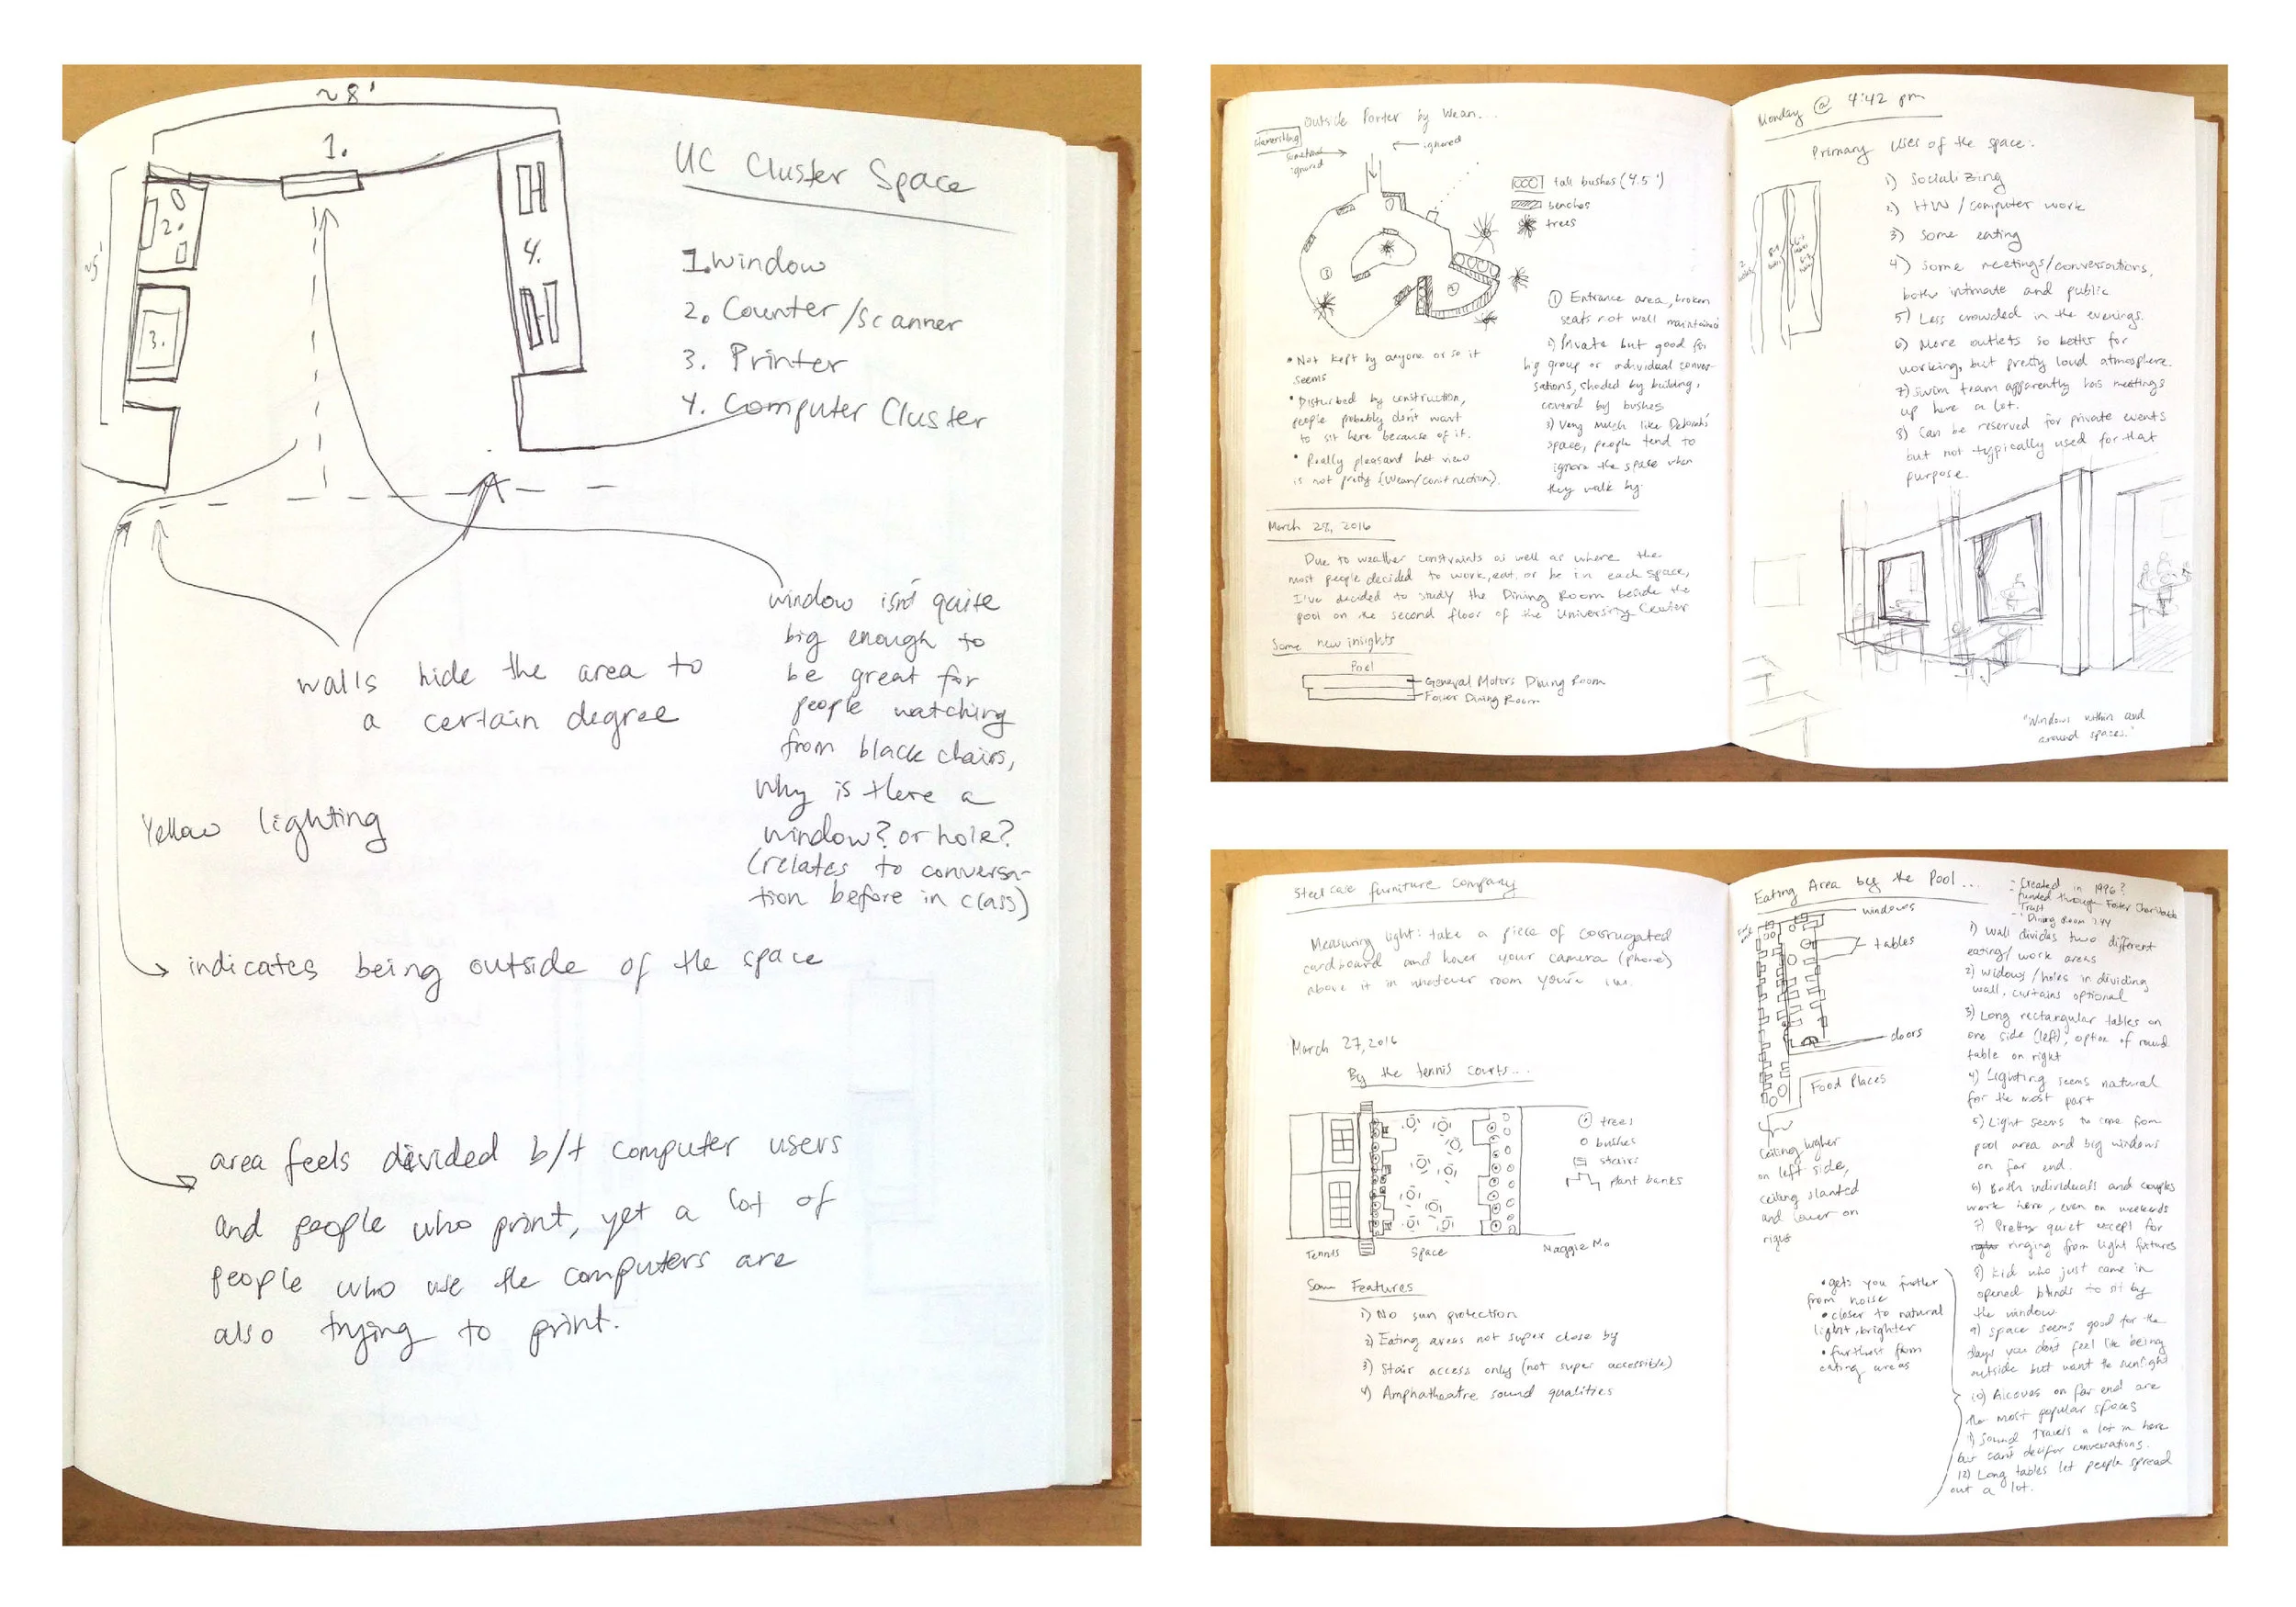 ~8'
1.
UC Cluster Space
~5'
2.
3.
4.
1. Window
2. Counter/scanner
3. Printer
4. Computer Cluster
walls hide the area to
a certain degree
window isn't quite
big enough to
be great for
people watching
from black chairs,
why is there a
window? or hole?
(relates to conversa-
tion before in class)
Yellow lighting
indicates being outside of the space
area feels divided b/t computer users
and people who print, yet a lot of
people who use the computers are
also trying to print.
outside Porter by Wean...
sometimes
ignored
ignored
tall bushes (4.5')
benches
trees
① Entrance area, broken
seats not well maintained
2) Private but good for
big group or individual conver-
sations, shaded by building,
covered by bushes
3) Very much like Deborah's
space, people tend to
ignore the space when
they walk by.
• Not kept by anyone or so it
seems
• Disturbed by construction,
people probably don't want
to sit here because of it.
• Really pleasant but view
is not pretty (Wean/construction).
March 28, 2016
Due to weather constraints as well as where the
most people decided to work, eat, or be in each space,
I've decided to study the Dining Room beside the
pool on the second floor of the University Center
Some new insights
Pool
General Motors Dining Room
Foster Dining Room
Monday @ 4:42 pm
Primary Uses of the space:
1) Socializing
2) HW / computer work
3) Some eating
4) Some meetings/conversations,
both intimate and public
5) Less crowded in the evenings.
6) More outlets so better for
working, but pretty loud atmosphere.
7) Swim team apparently has meetings
up here a lot.
8) Can be reserved for private events
but not typically used for that
purpose.
"Windows within and
around spaces."
Steelcase furniture company
Measuring light: take a piece of corrugated
cardboard and hover your camera (phone)
above it in whatever room you're in.
March 27, 2016
By the tennis courts...
trees
bushes
stairs
plant banks
Tennis
Space
Maggie Mo
Some Features
1) No sun protection
2) Eating areas not super close by
3) Stair access only (not super accessible)
4) Amphatheatre sound qualities
Eating Area by the Pool...
- Created in 1996?
funded through Foster Charitable
Trust
- Dining Room 244
windows
tables
doors
Food Places
Ceiling higher
on left side,
ceiling slanted
and lower on
right
1) Wall divides two different
eating/ work areas
2) widows/holes in dividing
wall, curtains optional
3) Long rectangular tables on
one side (left), option of round
table on right
4) Lighting seems natural
for the most part
5) Light seems to come from
pool area and big windows
on far end.
6) Both individuals and couples
work here, even on weekends
7) Pretty quiet except for
ringing from light fixtures
8) Kid who just came in
opened blinds to sit by
the window
9) Space seems good for the
days you don't feel like being
outside but want the sunlight
10) Alcoves on far end are
the most popular spaces
11) Sound travels a lot in here
but can't decifer conversations.
12) Long tables let people spread
out a lot.
• gets you further
from noise
• closer to natural
light, brighter
• furthest from
eating areas